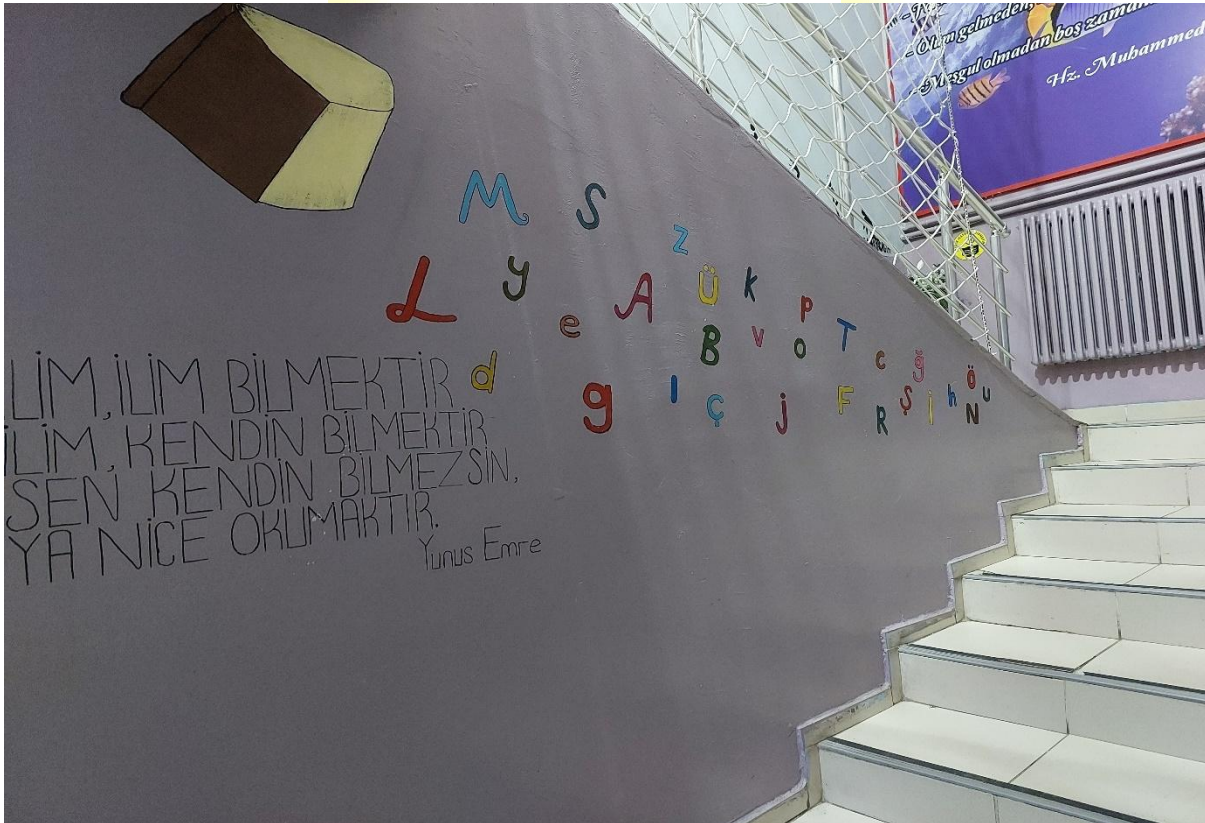 - Ölüm gelmeden,
- Meşgul olmadan boş zaman
Hz. Muhammed
M S z
L y e A Ü K p
B v o T c ğ
d g I Ç j F R Ş İ h Ö N u
LİM, İLİM BİLMEKTİR
İLİM, KENDİN BİLMEKTİR
SEN KENDİN BİLMEZSİN,
YA NİCE OKUMAKTIR.
Yunus Emre